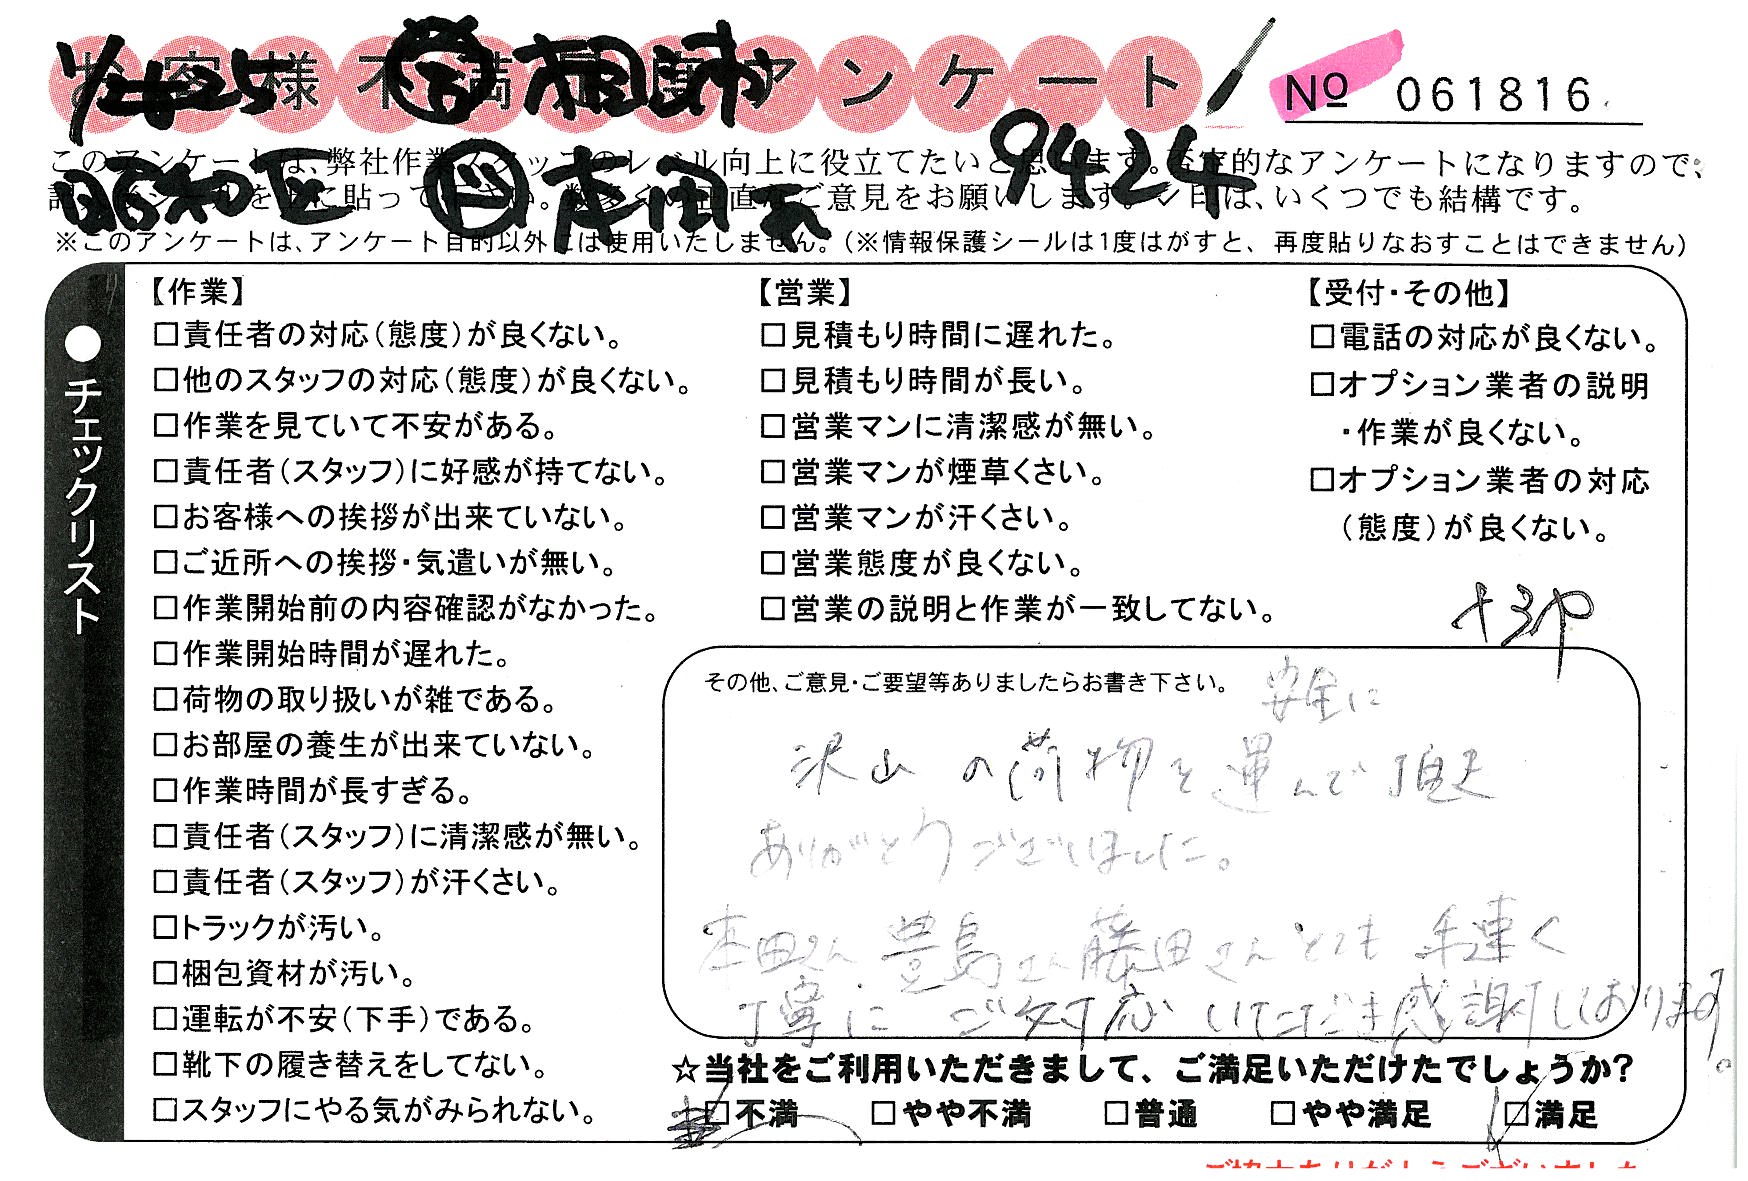 お客様不満足度アンケート
No 061816
1/25
昭和区
本田
9424
このアンケートは、弊社作業スタッフのレベル向上に役立てたいと思います。否定的なアンケートになりますので、
に貼って下さい。数多くの正直なご意見をお願いします。✓印は、いくつでも結構です。
※このアンケートは、アンケート目的以外には使用いたしません。(※情報保護シールは1度はがすと、再度貼りなおすことはできません)
●チェックリスト
【作業】
□責任者の対応(態度)が良くない。
□他のスタッフの対応(態度)が良くない。
□作業を見ていて不安がある。
□責任者(スタッフ)に好感が持てない。
□お客様への挨拶が出来ていない。
□ご近所への挨拶・気遣いが無い。
□作業開始前の内容確認がなかった。
□作業開始時間が遅れた。
□荷物の取り扱いが雑である。
□お部屋の養生が出来ていない。
□作業時間が長すぎる。
□責任者(スタッフ)に清潔感が無い。
□責任者(スタッフ)が汗くさい。
□トラックが汚い。
□梱包資材が汚い。
□運転が不安(下手)である。
□靴下の履き替えをしてない。
□スタッフにやる気がみられない。
【営業】
□見積もり時間に遅れた。
□見積もり時間が長い。
□営業マンに清潔感が無い。
□営業マンが煙草くさい。
□営業マンが汗くさい。
□営業態度が良くない。
□営業の説明と作業が一致してない。
【受付・その他】
□電話の対応が良くない。
□オプション業者の説明
・作業が良くない。
□オプション業者の対応
(態度)が良くない。
その他、ご意見・ご要望等ありましたらお書き下さい。
安全に
沢山の荷物を運んで頂き
ありがとうございました。
本田さん 豊島さん 藤田さん とても 手速く
丁寧に ご対応いただき感謝しております。
☆当社をご利用いただきまして、ご満足いただけたでしょうか?
□不満 □やや不満 □普通 □やや満足 □満足
ご協力ありがとうございました